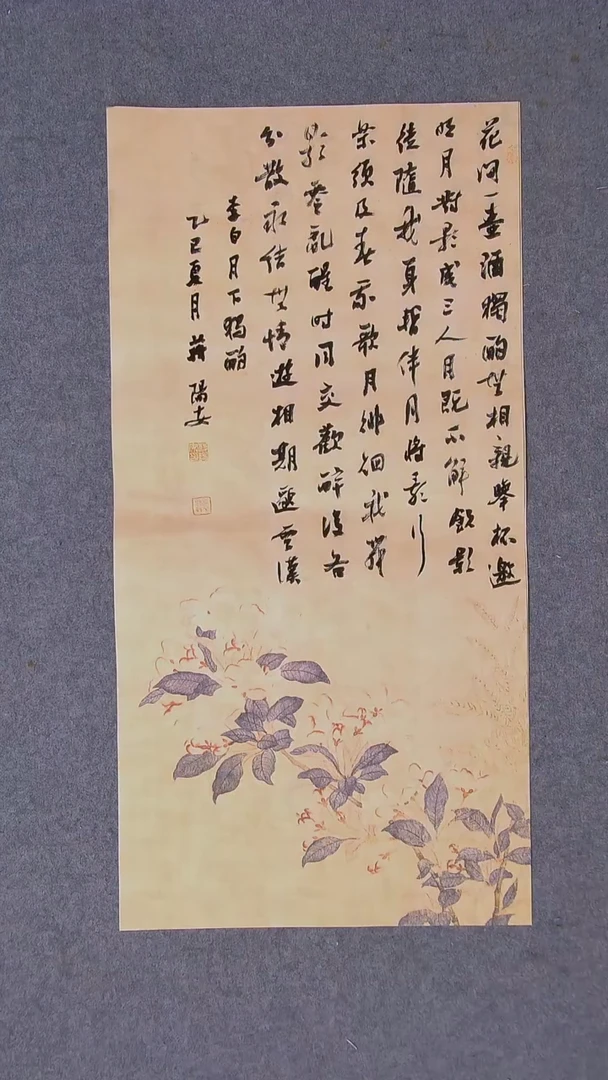 花间一壺酒獨酌無相親舉杯邀
明月對影成三人月既不解飲影
徒隨我身暫伴月將影行
樂須及春我歌月徘徊我舞
影零亂醒时同交歡醉後各
分散永結無情遊相期邈雲漢
李白月下獨酌
乙巳夏月